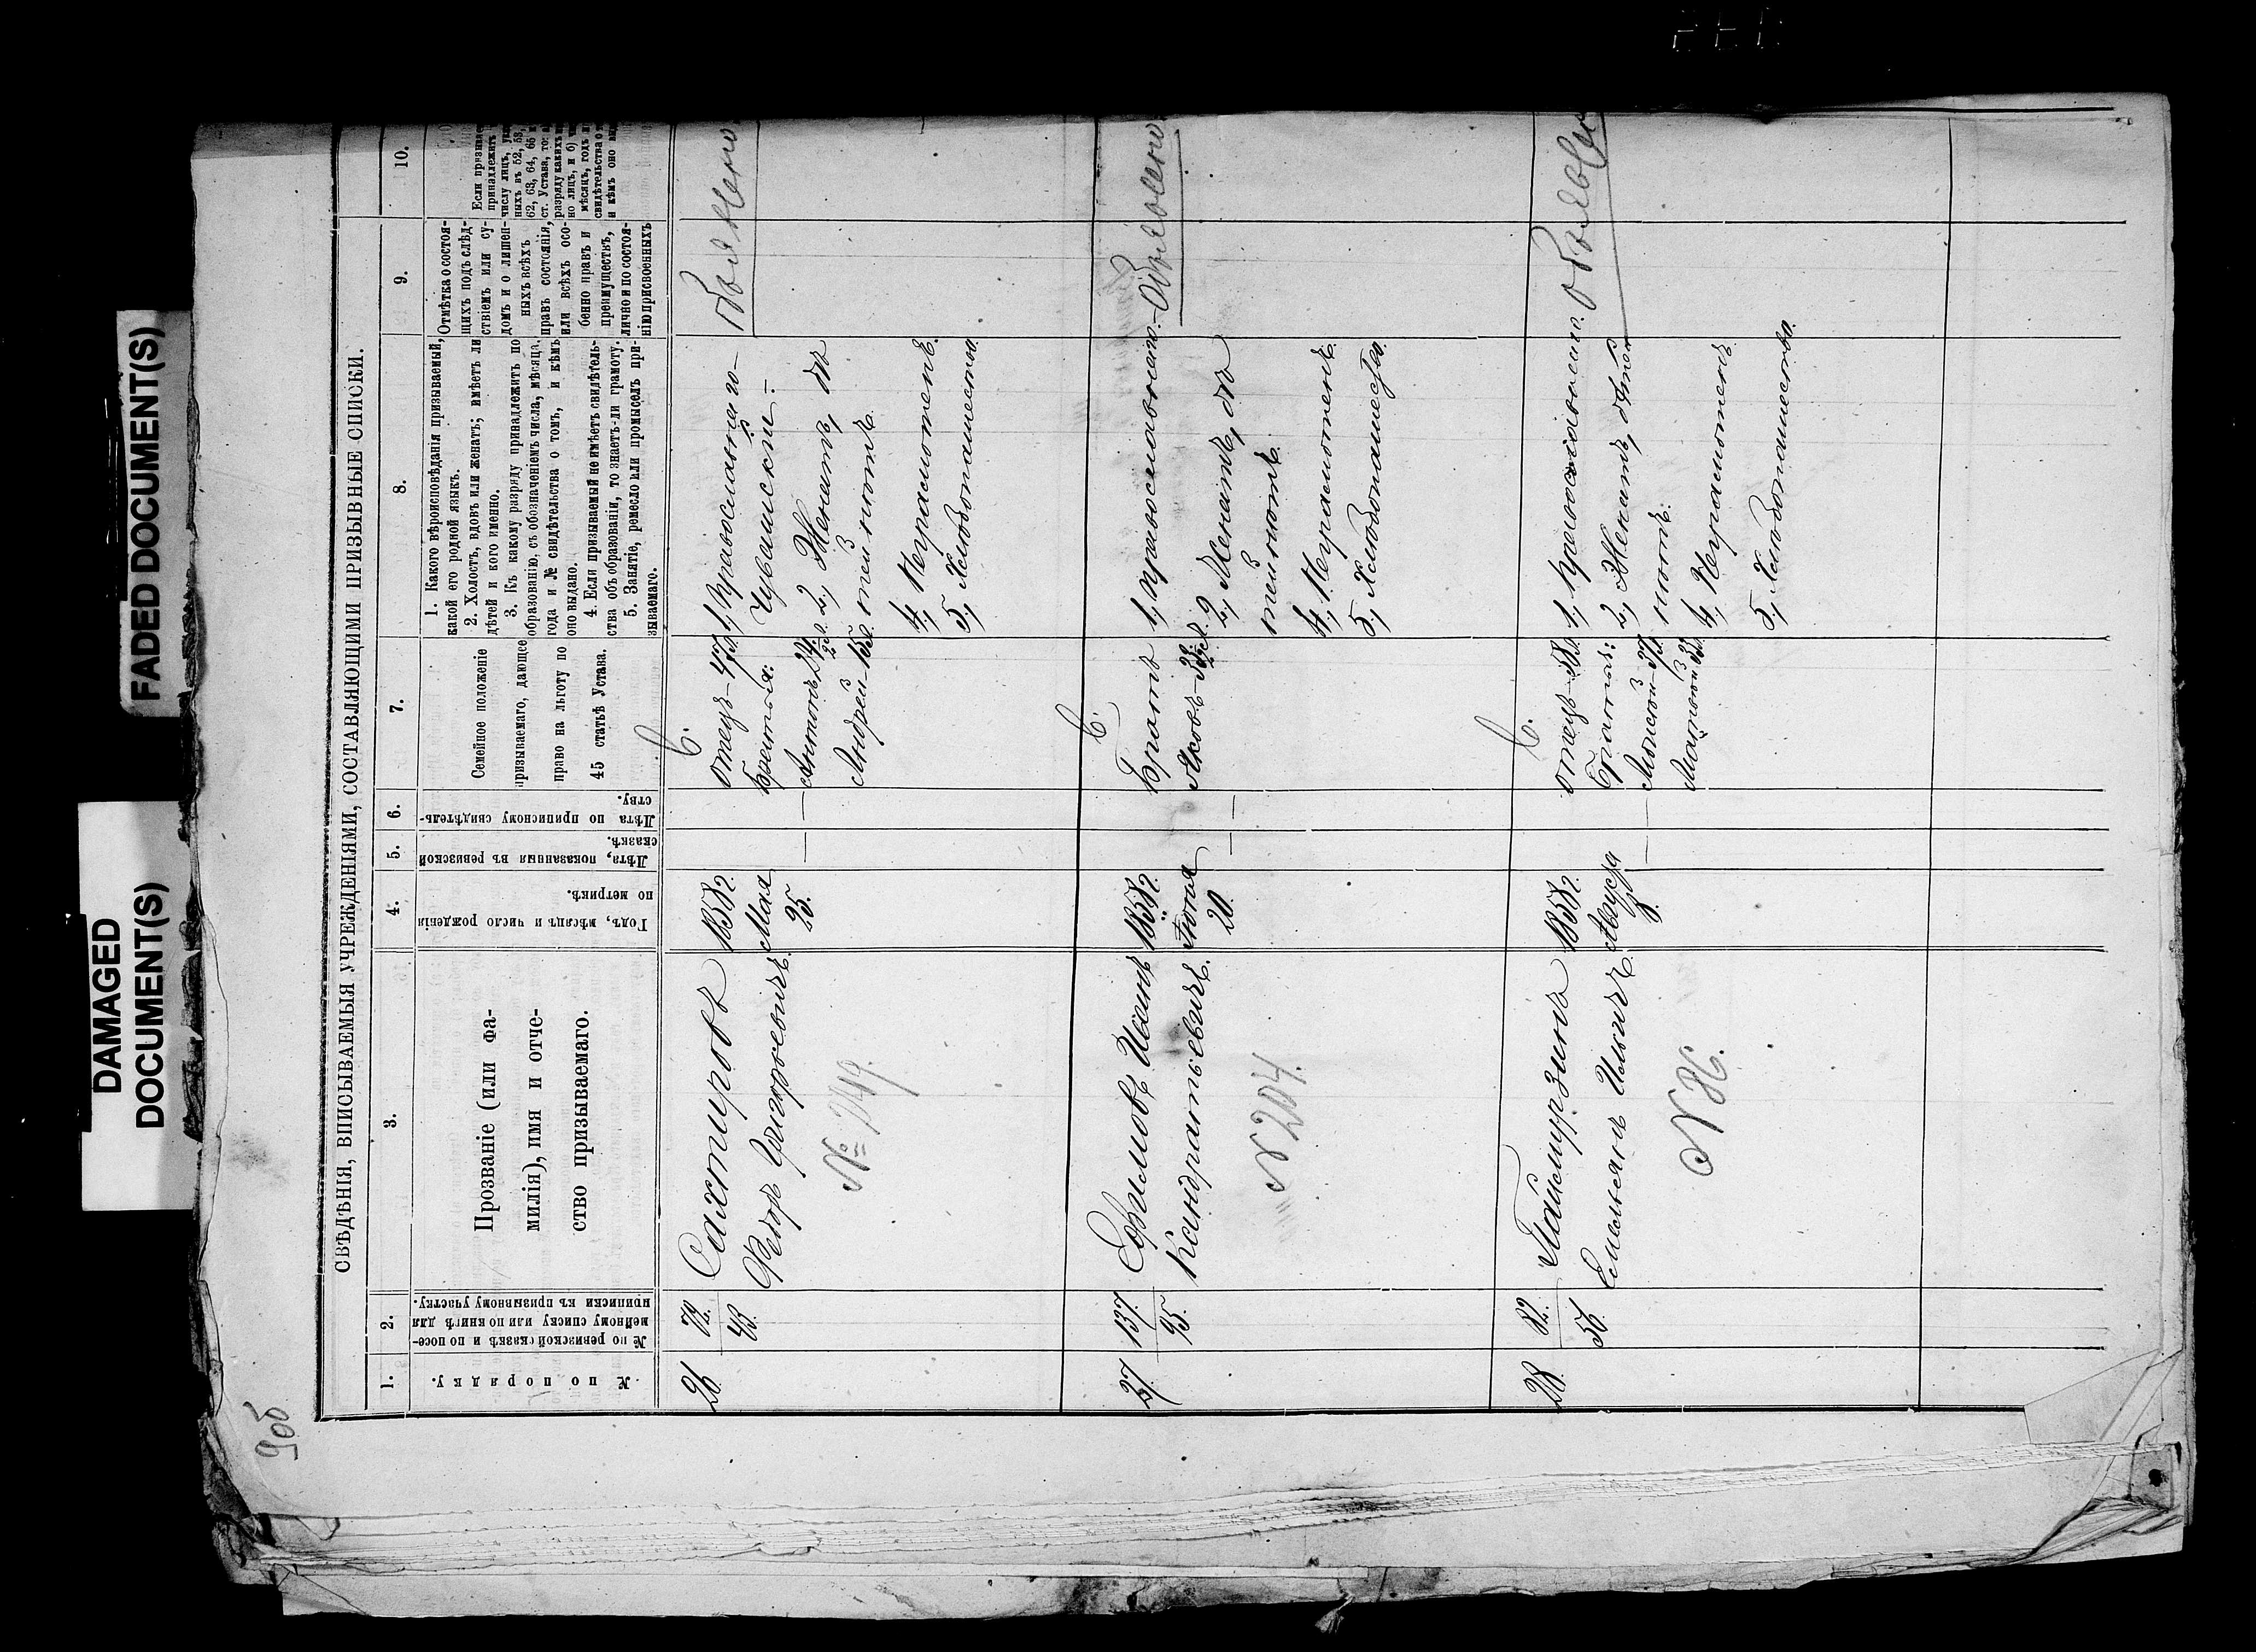 FADED DOCUMENT(S)
DAMAGED
DOCUMENT(S)
9об
СВѢДѢНІЯ, ВПИСЫВАЕМЫЯ УЧРЕЖДЕНІЯМИ, СОСТАВЛЯЮЩИМИ ПРИЗЫВНЫЕ СПИСКИ.
1.
2.
3.
4.
5.
6.
7.
8.
9.
10.
№ по порядку.
№ по ревизской сказкѣ и по посе-
мейному списку или по книгѣ для
приписки къ призывному участку.
Прозваніе (или фа-
милія), имя и отче-
ство призываемаго.
Годъ, мѣсяцъ и число рожденія
по метрикѣ.
Лѣта, показанныя въ ревизской
сказкѣ.
Лѣта по приписному свидѣтель-
ству.
Семейное положеніе
призываемаго, дающее
право на льготу по
45 статьѣ Устава.
1. Какого вѣроисповѣданія призываемый,
какой его родной языкъ.
2. Холостъ, вдовъ или женатъ; имѣетъ ли
дѣтей и кого именно.
3. Къ какому разряду принадлежитъ по
образованію, съ обозначеніемъ числа, мѣсяца,
года и № свидѣтельства о томъ, и кѣмъ
оно выдано.
4. Если призываемый не имѣетъ свидѣтель-
ства объ образованіи, то знаетъ-ли грамоту.
5. Занятіе, ремесло или промыселъ при-
зываемаго.
Отмѣтка о состоя-
щихъ подъ слѣд-
ствіемъ или су-
домъ и о лишен-
ныхъ всѣхъ
правъ состоянія,
или всѣхъ осо-
бенно правъ и
преимуществъ,
лично и по состоя-
нію присвоенныхъ
Если призывае
принадлежитъ
числу лицъ, ук
ныхъ въ 52, 53,
62, 63, 64, 65 и
ст. Устава, то: а
разряду какихъ
но лицъ, и б) ч
мѣсяцъ, годъ и
свидѣтельства о
и кѣмъ оно вы
26
72.
43.
Сахтировъ
Федоръ Григорьевичъ
№ 249.
1858 г.
Мая
25.
—
—
Отецъ – 47 л.
братья:
Антонъ 24. 2 ял.
Андрей – 15 л.
1, Православнаго –
Чувашскій. –
2, Женатъ, дѣ
тей нѣтъ.
4, Неграмотенъ.
5, Хлебопашество.
27.
137.
95.
Ефимовъ Иванъ
Кандратьевичъ.
№ 204.
1858 г.
Іюня
20.
—
—
Братъ
Яковъ
1, Православнаго. –
2, Женатъ, дѣ
тей нѣтъ.
4, Неграмотенъ.
5, Хлебопашество.
28.
82.
56.
Паймурзинъ
Емельянъ Ильичъ.
№ 86.
1858 г.
Августа
8.
—
—
отецъ – 58 л.
братья:
1, Православнаго.
2, Женатъ, дѣтей
нѣтъ.
4, Неграмотенъ
5, Хлебопашество.